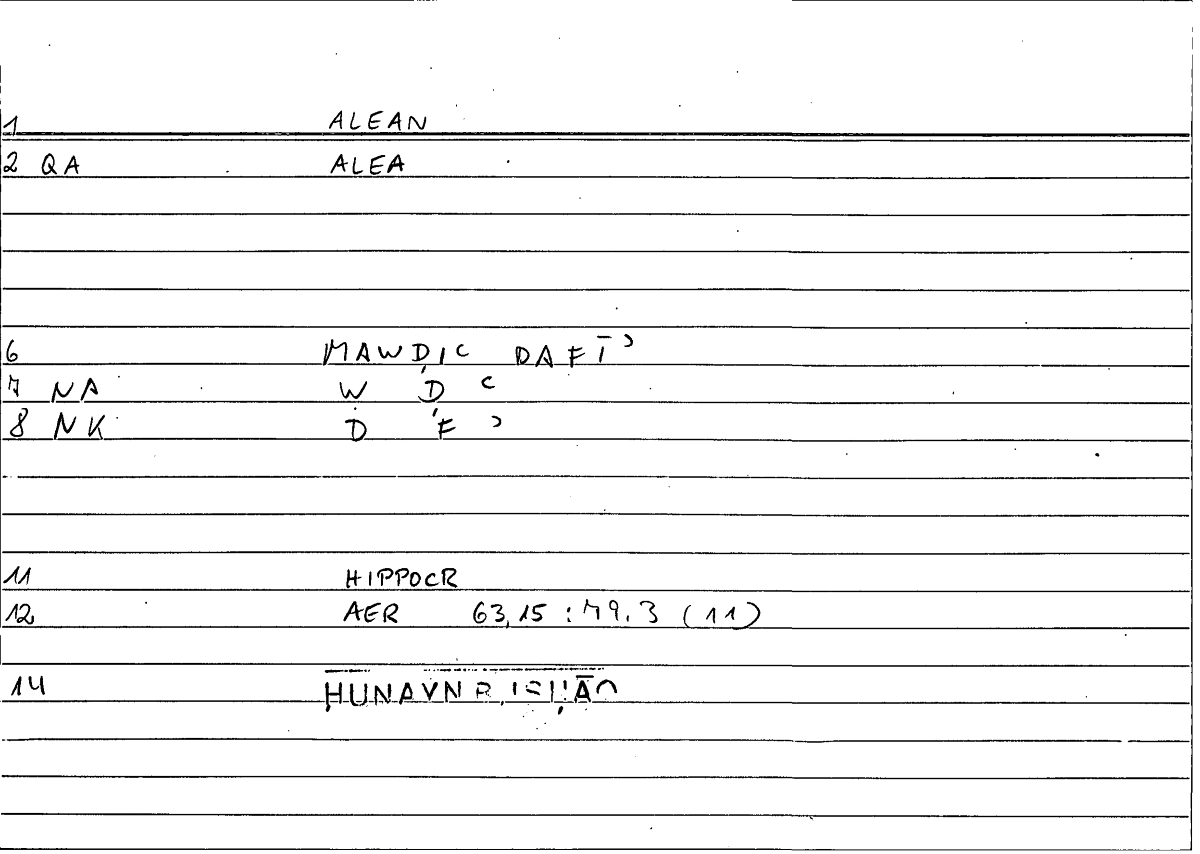 1 ALEAN
2 QA ALEA
6 MAWḌIʿ DAFĪʾ
7 NA W Ḍ ʿ
8 NK D F ʾ
11 HIPPOCR
12 AER 63,15 : 79.3 (11)
14 ḤUNAYN B. ISḤĀQ